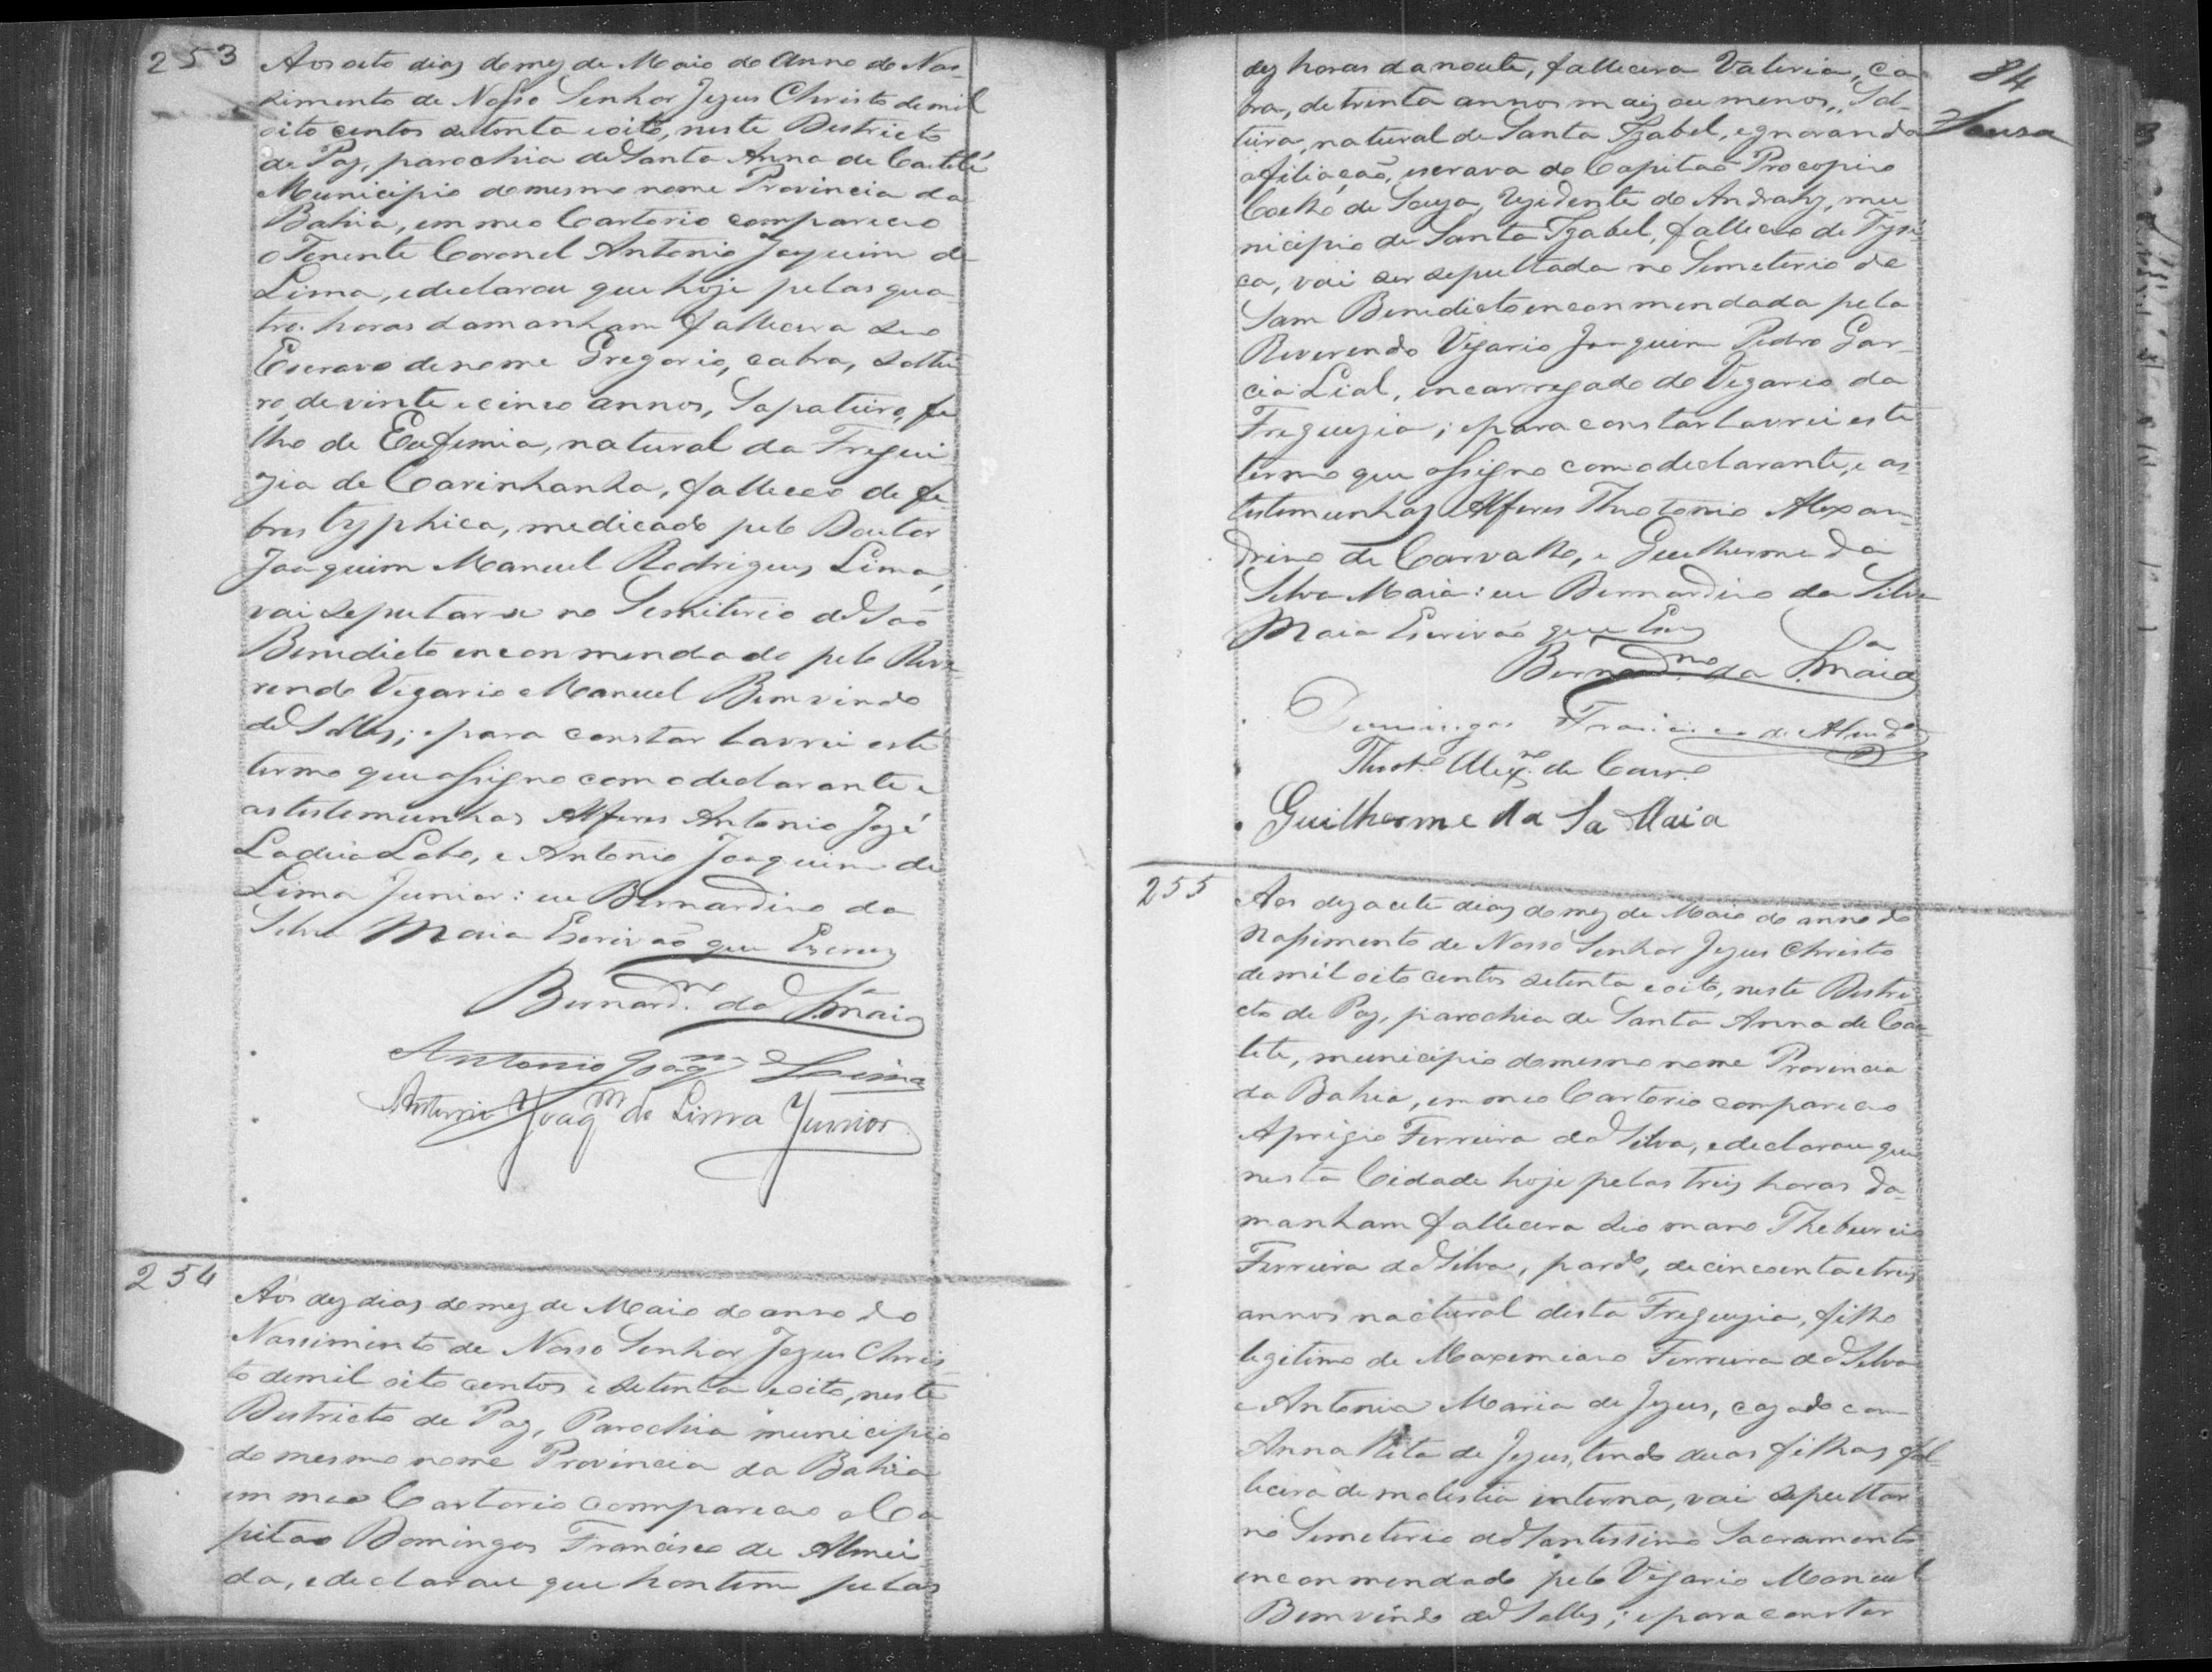 253
Aos oito dias do mez de Maio do Anno do Nas-
simento de Nosso Senhor Jezus Christo de mil
oito centos setenta e oito, neste Destricto
de Paz, parochia de Santa Anna de Caitité
Municipio do mesmo nome Provincia da
Bahia, em meo Cartorio compareceo
o Tenente Coronel Antonio Joaquim de
Lima, e declarou que hoje pelas qua-
tro horas da manham fallecera seo
Escravo de nome Gregorio, cabra, soltei-
ro, de vinte e cinco annos, Sapateiro, fi-
lho de Eufemia, natural da Fregue-
zia de Carinhanha, falleceo de fe-
bres typhica, medicado pelo Doutor
Joaquim Manuel Rodrigues Lima,
vai sepultar se no Semiterio de São
Benedicto enconmendado pelo Reve-
rendo Vigario Manuel Bemvindo
de Salles; e para constar lavrei este
termo que assigno com o declarante e
as testemunhas Alferes Antonio Jozé
Ladeia Lobo, e Antonio Joaquim de
Lima Junior: eu Bernardino da
Silva Maia Escrivão que Escrevy
Bernardno da Sa Maia
Antonio Joaqm de Lima
Antonio Joaqm de Lima Junior
254
Aos dez dias do mez de Maio do anno do
Nassimento de Nosso Senhor Jezus Chris-
to de mil oito centos e setenta e oito, neste
Destricto de Paz, Parochia municipio
do mesmo nome Provincia da Bahia
em meo Cartorio compareceo o Ca-
pitao Domingos Francisco de Almei-
da, e declarou que hontem pelas
84
Sousa
dez horas da noute, fallecera Valeria, ca-
bra, de trinta annos mais ou menos, Sol-
teira, natural de Santa Izabel, egnorando
a filiação, escrava do Capitão Procopio
Coelho de Souza, rezidente do Andrahy, mu-
nicipio de Santa Izabel, falleceo de Tysi-
ca, vai ser sepultada no Semeterio de
Sam Benedicto enconmendada pelo
Reverendo Vigario Joaquim Pedro Gar-
cia Lial, encarregado do Vigario da
Freguezia; e para constar lavrei este
termo que assigno com o declarante, e as
testemunhas Alferes Theotonio Alexan-
drino de Carvalho, e Guilherme da
Silva Maia: eu Bernardino da Silva
Maia Escrivão que Esvy
Bernardno da Sa Maia
Domingos Francisco de Almda
Theoto Alexe de Carvo
Guilherme da Sa Maia
255
Aos dezacete dias do mez de Maio do anno do
Nassimento de Nosso Senhor Jezus Christo
de mil oito centos setenta e oito, neste Destri-
cto de Paz, parochia de Santa Anna de Cai-
tete, municipio do mesmo nome Provincia
da Bahia, em meo Cartorio compareceo
Aprigio Ferreira da Silva, e declarou que
nesta Cidade hoje pelas treis horas da
manham fallecera seo mano Theburcio
Ferreira da Silva, pardo, de cincoenta e treis
annos nactural desta Freguezia, filho
legitimo de Maxemiano Ferreira da Silva
e Antonia Maria de Jezus, cazado com
Anna Rita de Jezus, tendo duas filhas fal-
lecera de molestia interna, vai sepultar
no Semeterio do Santissimo Sacramento
enconmendado pelo Vigario Manuel
Bemvindo de Salles; e para constar